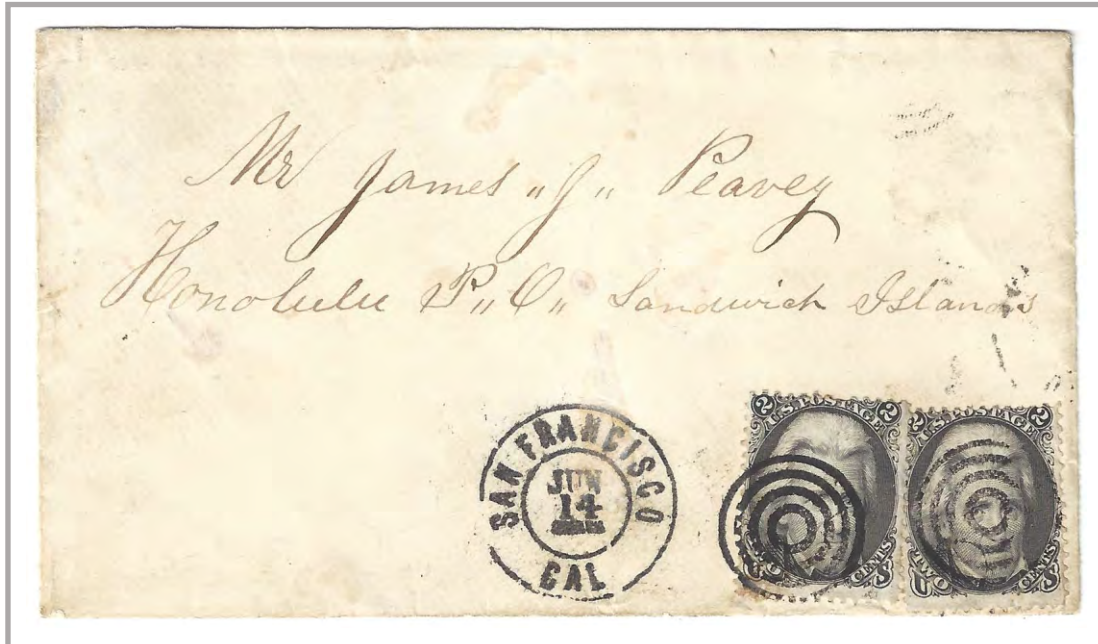 Mr James "J" Peavey
Honolulu P"O" Sandwich Islands
SAN FRANCISCO
JUN
14
CAL
2 U.S. POSTAGE 2
2 U.S. POSTAGE 2
TWO CENTS
TWO CENTS
U S